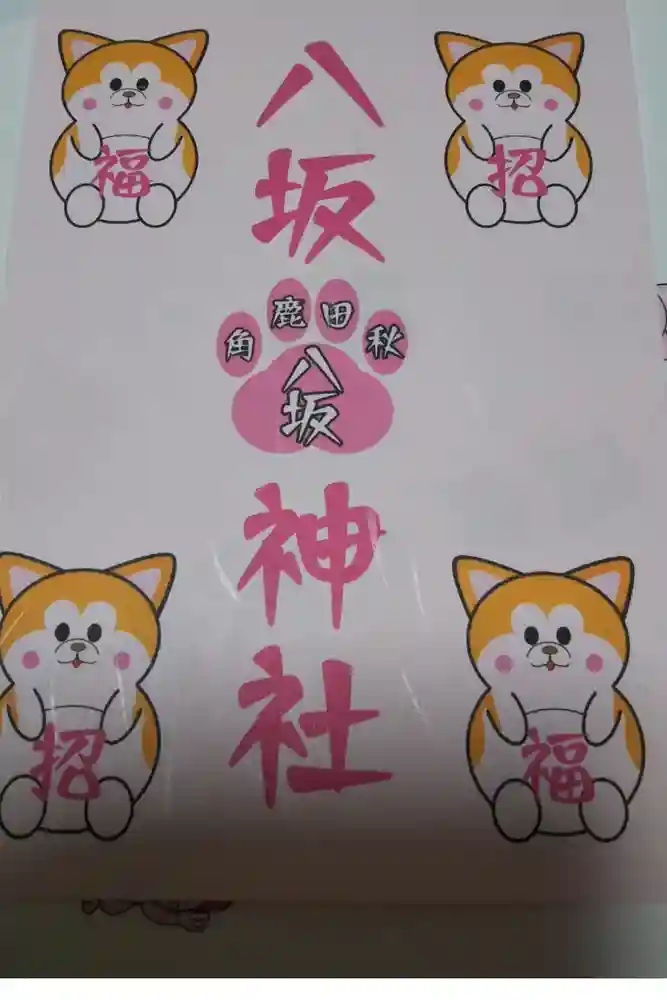 八坂神社
秋田鹿角
八坂
福
招
招
福